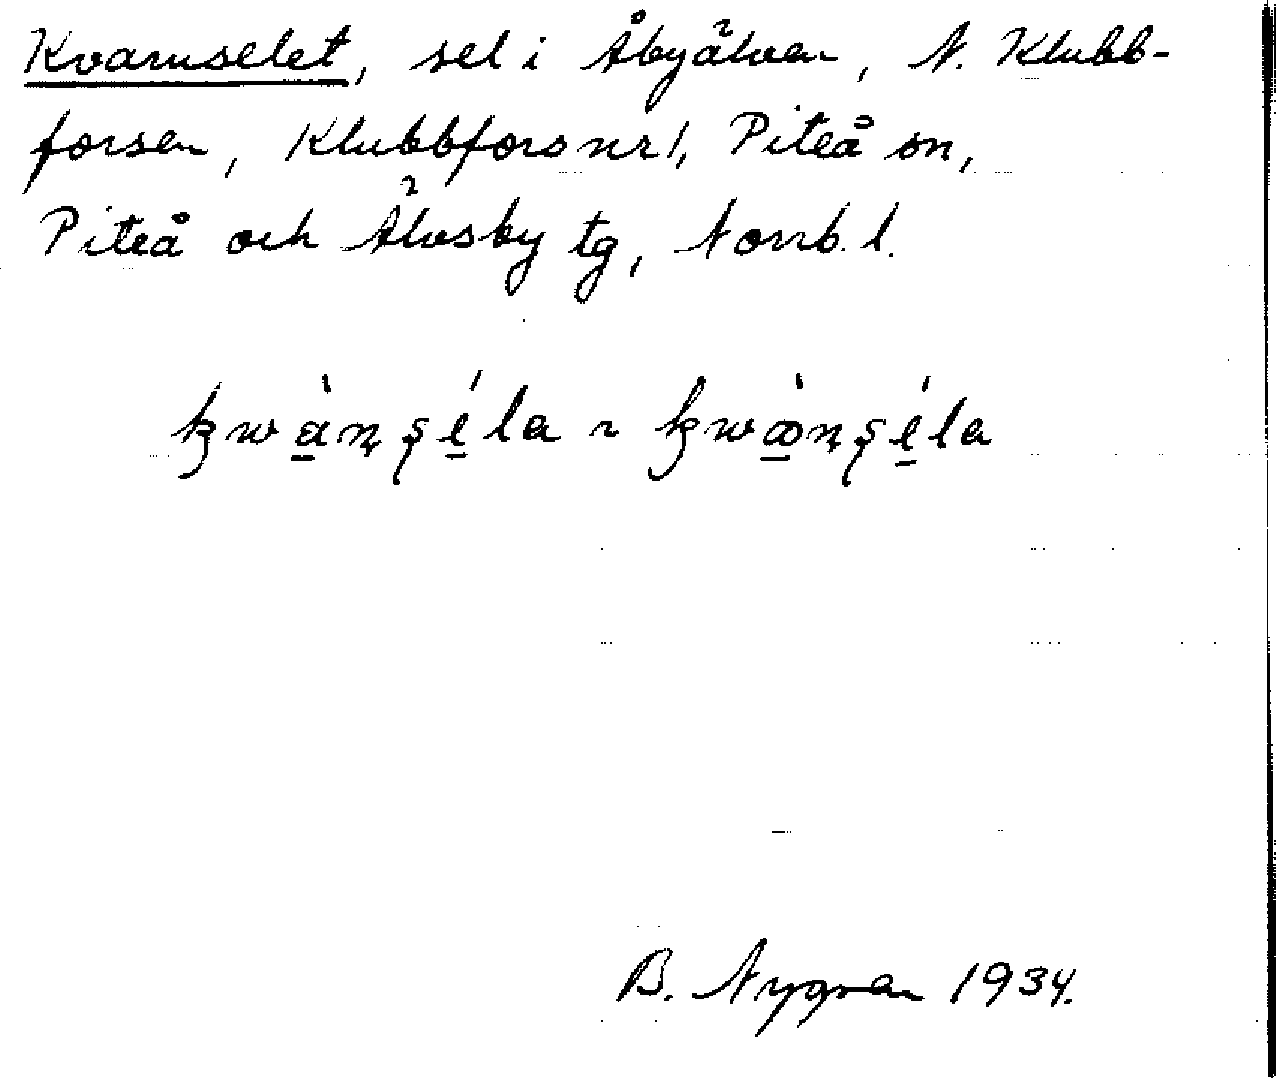 Kvarnselet, sel i Åbyälven, N. Klubb-
forsen, Klubbfors nr 1, Piteå sn,
Piteå och Älvsby tg, Norrb. l.
kwȧ̠ṇṣė̠la ~ kwꝏ̠̇ṇṣė̠la
B. Nygren 1934.